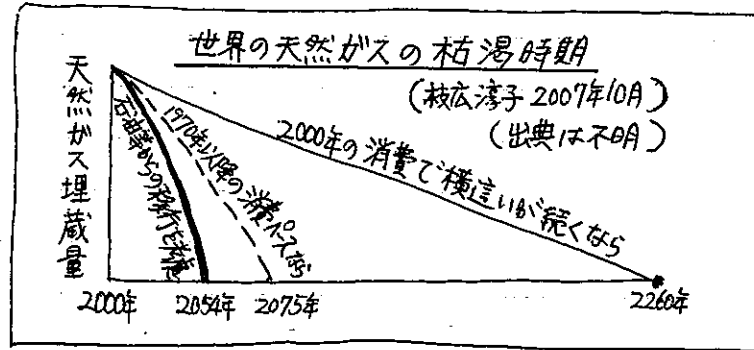 世界の天然ガスの枯渇時期
(枝広淳子 2007年10月)
(出典は不明)
天然ガス埋蔵量
石油等からの移行を考慮
1970年以降の消費ペースなら
2000年の消費で横這いが続くなら
2000年 2054年 2075年 2260年